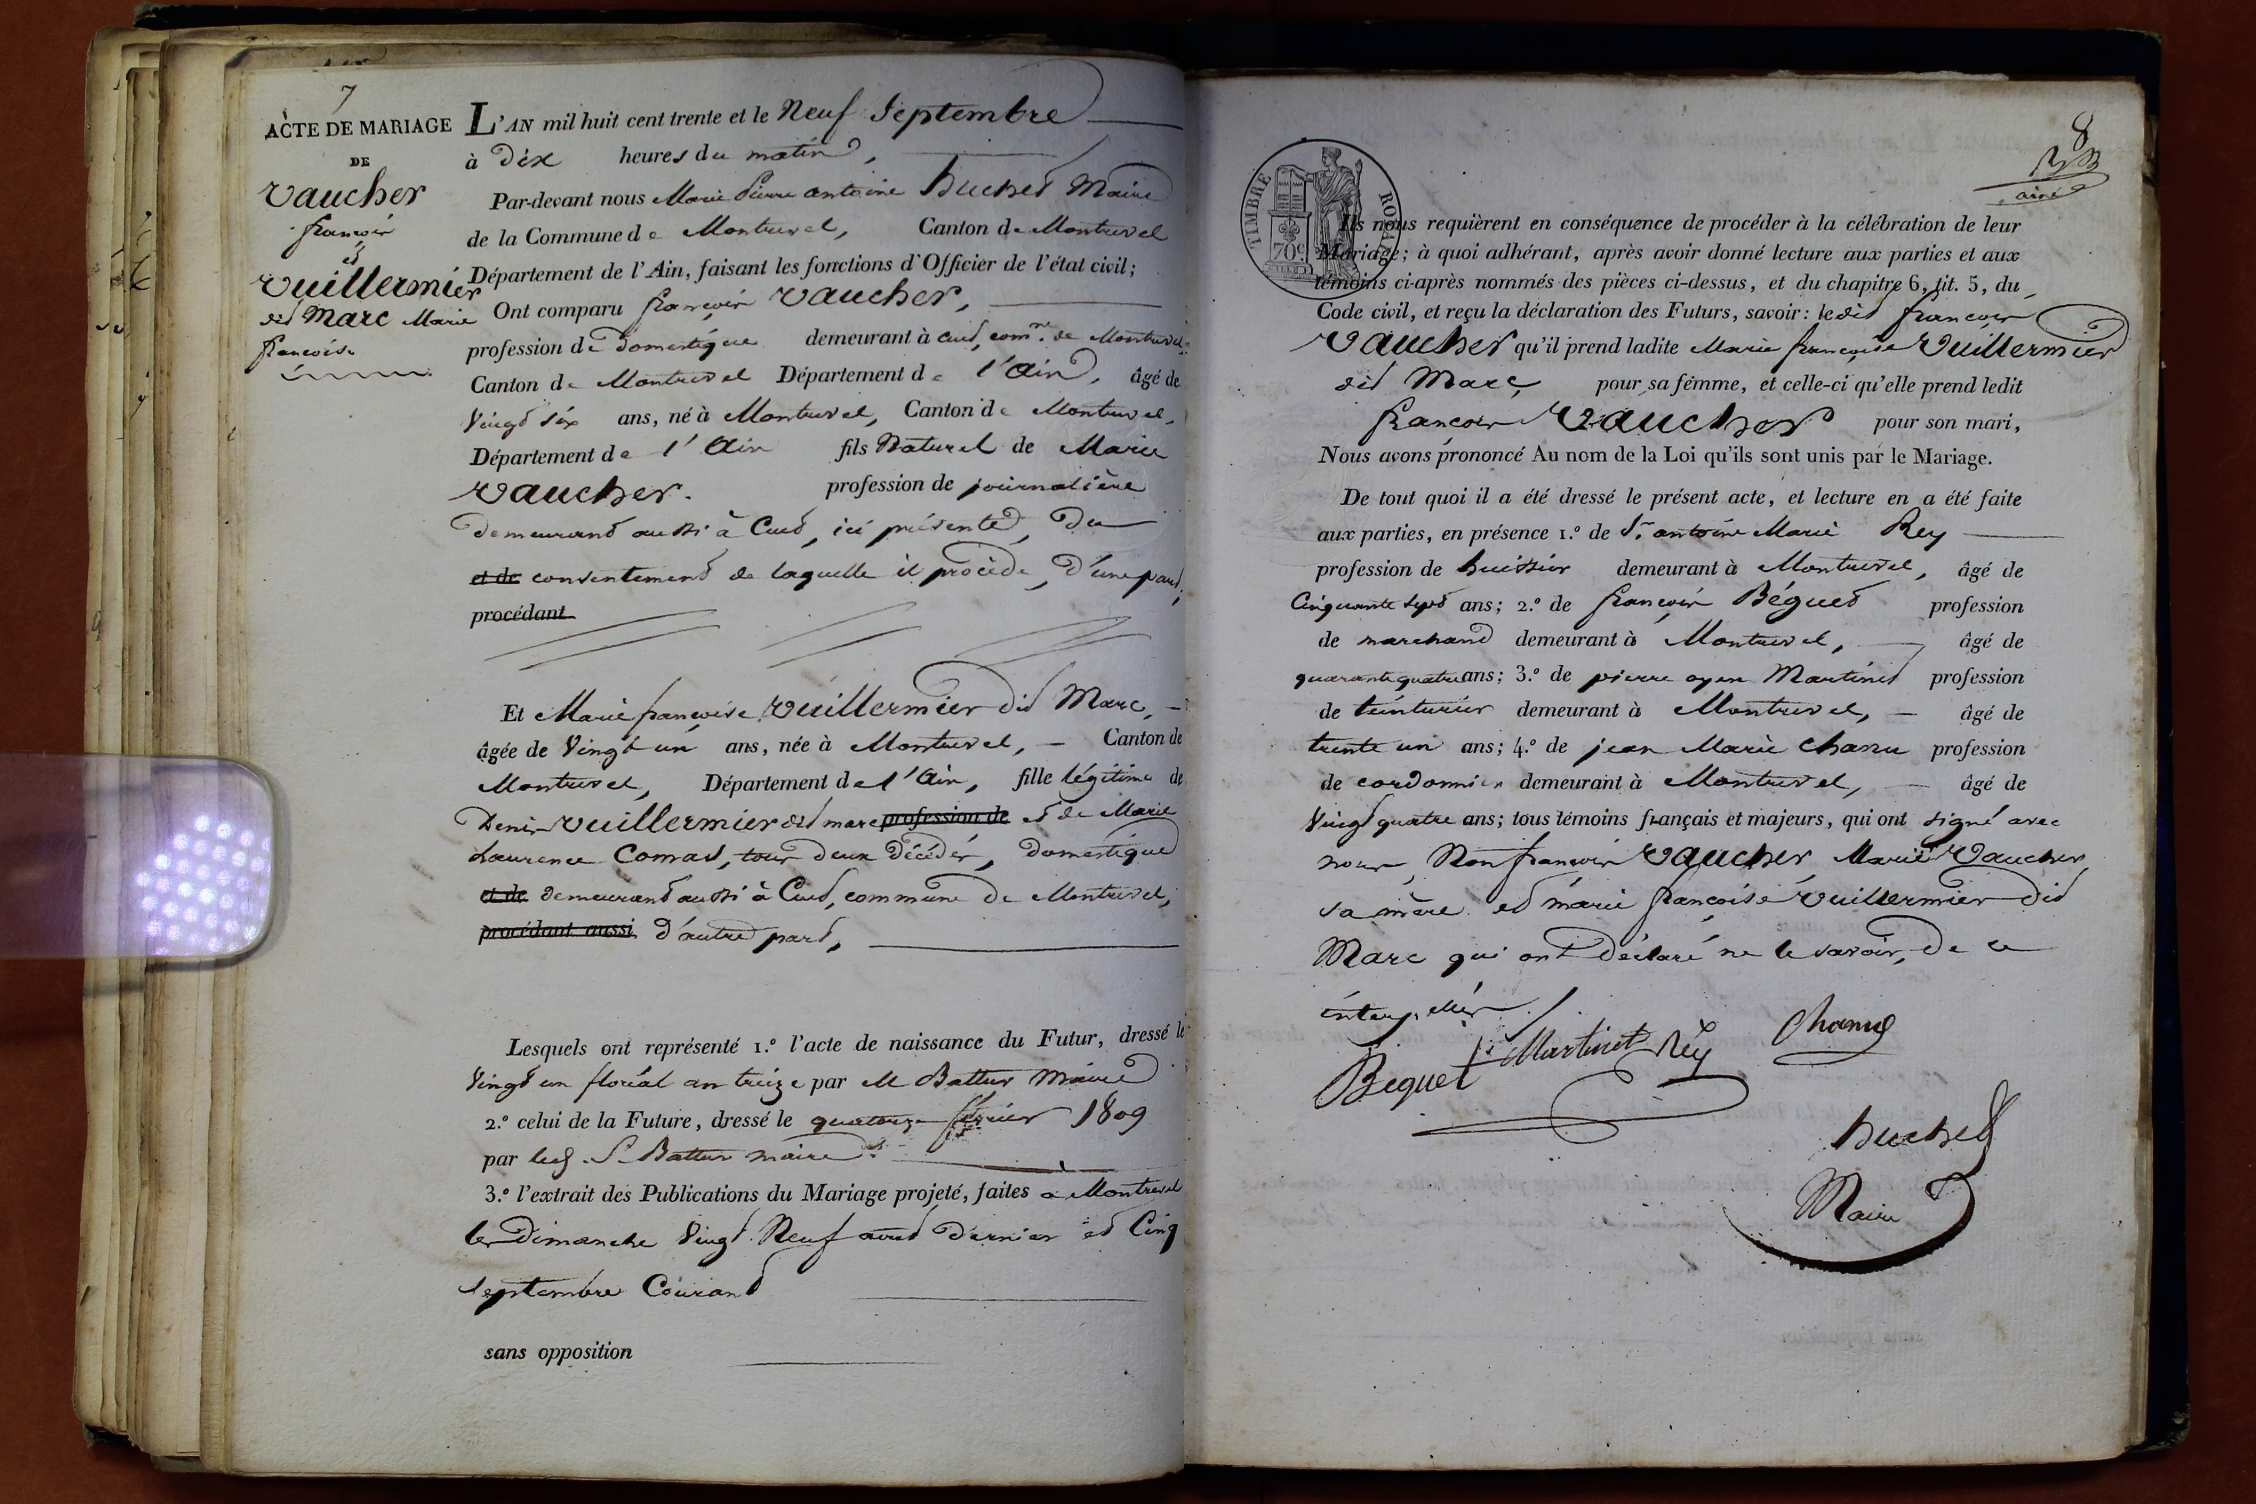 7
ACTE DE MARIAGE
DE
Vaucher
françois
et
Vuillermier
dit Marc Marie
françoise
L'AN mil huit cent trente et le Neuf Septembre
à dix heures du matin,
Par-devant nous Marie Pierre antoine huchet Maire
de la Commune de Montrevel, Canton de Montrevel
Département de l'Ain, faisant les fonctions d'Officier de l'état civil;
Ont comparu françois Vaucher,
profession de domestique demeurant à Cuet, com.ne de Montrevel
Canton de Montrevel Département de l'Ain, âgé de
Vingt six ans, né à Montrevel, Canton de Montrevel,
Département de l'Ain fils Naturel de Marie
Vaucher. profession de journalière
demeurant aussi à Cuet, ici présente, du
et de consentement de laquelle il procède, d'une part,
procédant
Et Marie françoise Vuillermier dit Marc,
âgée de Vingt un ans, née à Montrevel, Canton de
Montrevel, Département de l'Ain, fille légitime de
Denis Vuillermier dit marc profession de et de Marie
Laurence Comas, tous deux décédés, domestique
et de demeurant aussi à Cuet, commune de Montrevel,
procédant aussi d'autre part,
Lesquels ont représenté 1.º l'acte de naissance du Futur, dressé le
Vingt un floréal an treize par M Battur Maire
2.º celui de la Future, dressé le quatorze février 1809
par led. S. Battur maire
3.º l'extrait des Publications du Mariage projeté, faites à Montrevel
les Dimanche Vingt Neuf aout dernier et Cinq
septembre Courant
sans opposition
8
TIMBRE ROYAL
70c
Ils nous requièrent en conséquence de procéder à la célébration de leur
Mariage; à quoi adhérant, après avoir donné lecture aux parties et aux
témoins ci-après nommés des pièces ci-dessus, et du chapitre 6, tit. 5, du
Code civil, et reçu la déclaration des Futurs, savoir: ledit françois
Vaucher qu'il prend ladite Marie françoise Vuillermier
dit Marc, pour sa femme, et celle-ci qu'elle prend ledit
françois Vaucher pour son mari,
Nous avons prononcé Au nom de la Loi qu'ils sont unis par le Mariage.
De tout quoi il a été dressé le présent acte, et lecture en a été faite
aux parties, en présence 1.º de Sr. antoine Marie Rey
profession de huissier demeurant à Montrevel, âgé de
Cinquante sept ans; 2.º de françois Béguet profession
de marchand demeurant à Montrevel, âgé de
quarante quatre ans; 3.º de pierre oyen Martinet profession
de teinturier demeurant à Montrevel, âgé de
trente un ans; 4.º de jean Marie Chanu profession
de cordonnier demeurant à Montrevel, âgé de
Vingt quatre ans; tous témoins français et majeurs, qui ont signé avec
nous, Non françois Vaucher, Marie Vaucher,
sa mère et marie françoise Vuillermier dit
Marc qui ont déclaré ne le savoir, de ce
interpellés
Beguet Martinet Rey Chanu
huchet
Maire